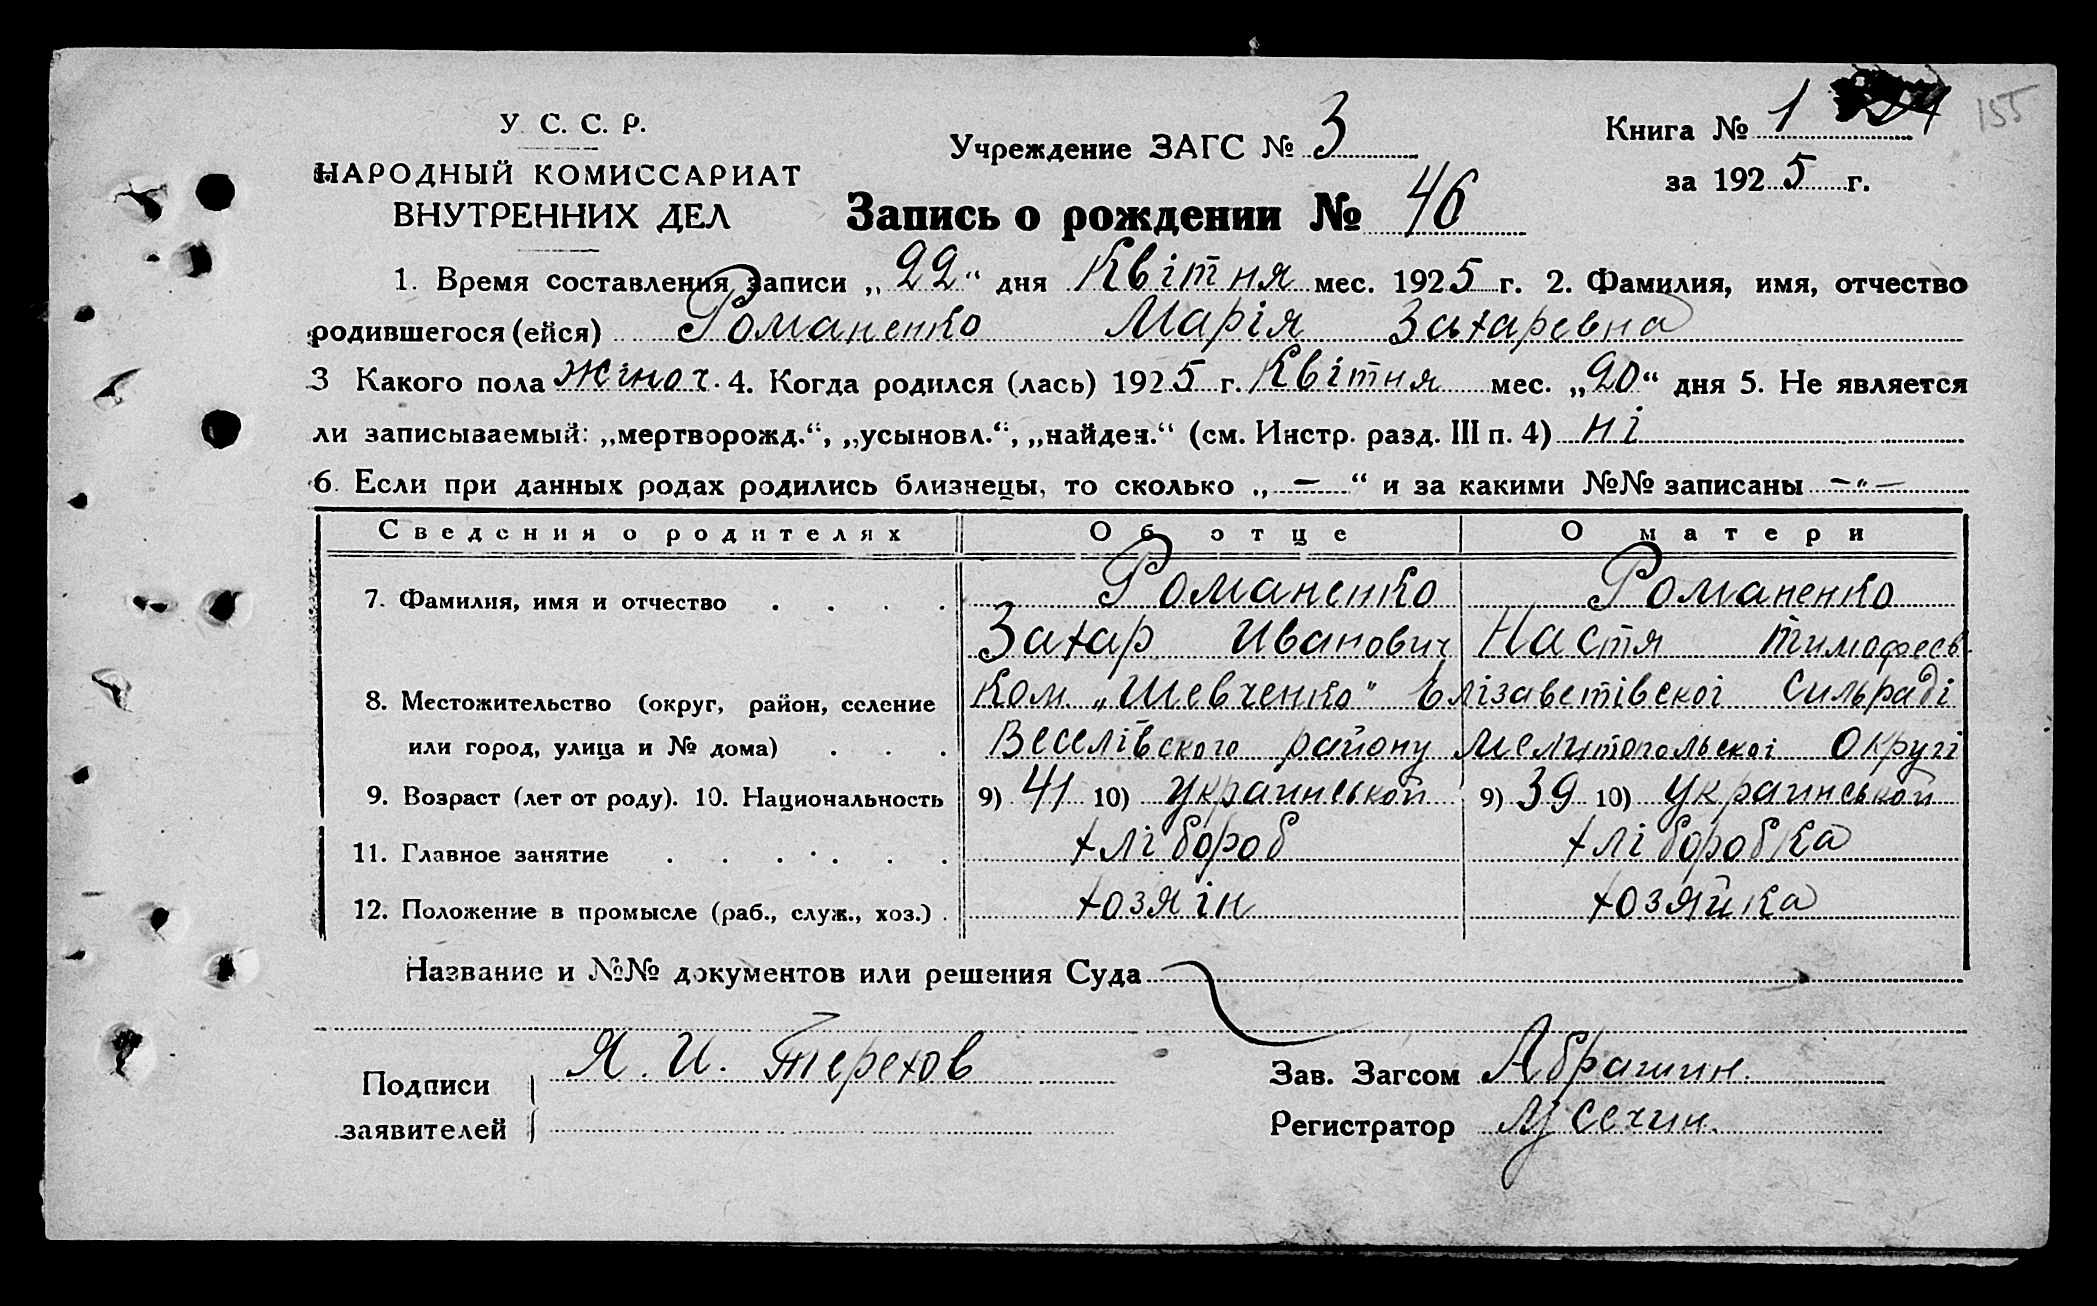 155
У. С. С. Р.
НАРОДНЫЙ КОМИССАРИАТ
ВНУТРЕННИХ ДЕЛ
Учреждение ЗАГС № 3
Книга № 1
за 1925 г.
Запись о рождении № 46
1. Время составления записи „22“ дня Квітня мес. 1925 г. 2. Фамилия, имя, отчество
родившегося (ейся) Романенко Марія Захаревна
3 Какого пола жіноч. 4. Когда родился (лась) 1925 г. Квітня мес. „20“ дня 5. Не является
ли записываемый: „мертворожд.“, „усыновл.“, „найден.“ (см. Инстр. разд. III п. 4) ні
6. Если при данных родах родились близнецы, то сколько „—“ и за какими №№ записаны —"—
Сведения о родителях Об отце О матери
7. Фамилия, имя и отчество . . . . Романенко Романенко
Захар Иванович Настя Тимофеев
8. Местожительство (округ, район, селение Ком. „Шевченко" Елізаветівскоі сильраді
или город, улица и № дома) . . . Веселівского району Мелитопольскоі округі
9. Возраст (лет от роду). 10. Национальность 9) 41 10) украинськой 9) 39 10) украинськой
11. Главное занятие . . . . . . хлібороб хліборобка
12. Положение в промысле (раб., служ., хоз.) . хозяін хозяйка
Название и №№ документов или решения Суда
Подписи Я. И. Терехов Зав. Загсом
заявителей Регистратор